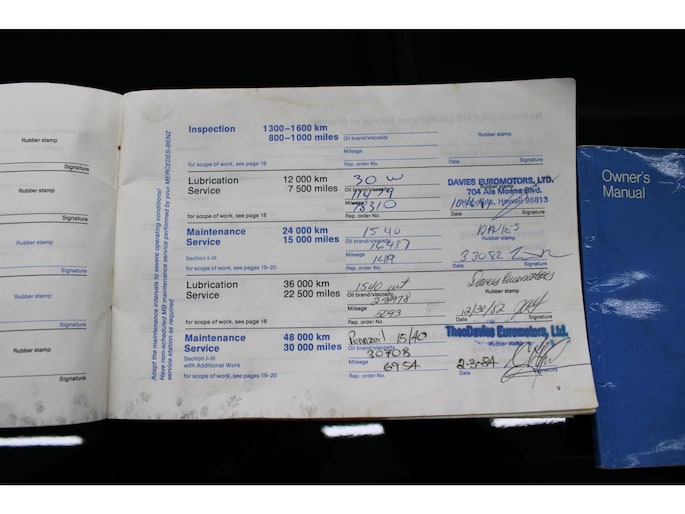 Rubber stamp
Signature
Rubber stamp
Signature
Rubber stamp
Signature
Rubber stamp
Signature
Rubber stamp
Signature
Adapt the maintenance intervals to severe operating conditions!
Have non-scheduled MB maintenance service performed by your MERCEDES-BENZ
service station as required
Inspection 1300–1600 km
800–1000 miles Oil brand/viscosity Rubber stamp
Mileage
for scope of work, see page 18 Rep. order No. Date Signature
Lubrication 12 000 km 30 W DAVIES EUROMOTORS, LTD.
Service 7 500 miles Oil brand/viscosity 11479 Rubber stamp 704 Ala Moana Blvd.
Mileage 18310 Honolulu, Hawaii 96813
for scope of work, see page 18 Rep. order No. Date Signature
Maintenance 24 000 km 15 40
Service 15 000 miles Oil brand/viscosity 16437 Rubber stamp
Section I–III Mileage 1419 3 30 82
for scope of work, see pages 19–20 Rep. order No. Date Signature
Lubrication 36 000 km 1540 Davies Euromotors
Service 22 500 miles Oil brand/viscosity Rubber stamp
Mileage 5093 12/30/82
for scope of work, see page 18 Rep. order No. Date Signature
Maintenance 48 000 km Pennzoil 15/40 TheoDavies Euromotors, Ltd.
Service 30 000 miles Oil brand/viscosity 30708 Rubber stamp
Section I–III Mileage
with Additional Work 6954 2-3-84
for scope of work, see pages 19–20 Rep. order No. Date Signature
9
Owner's
Manual